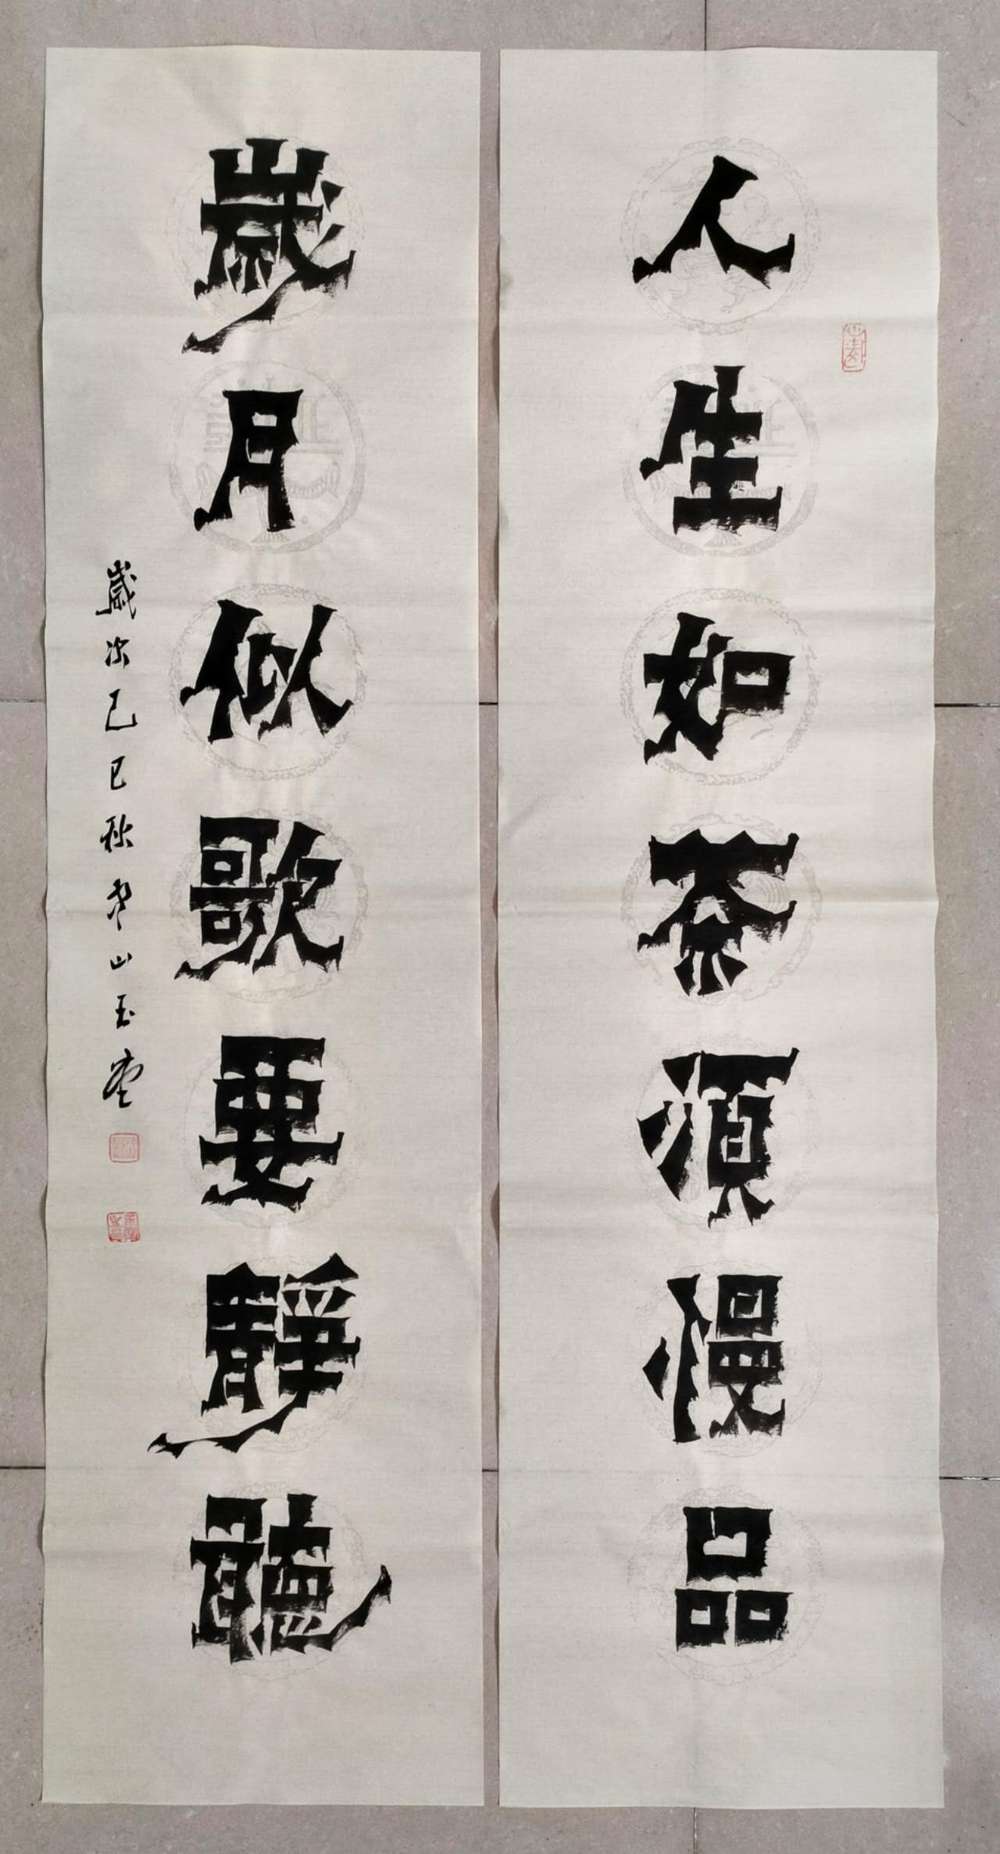 人生如茶須慢品
歲月似歌要靜聽
歲次乙巳秋 山玉